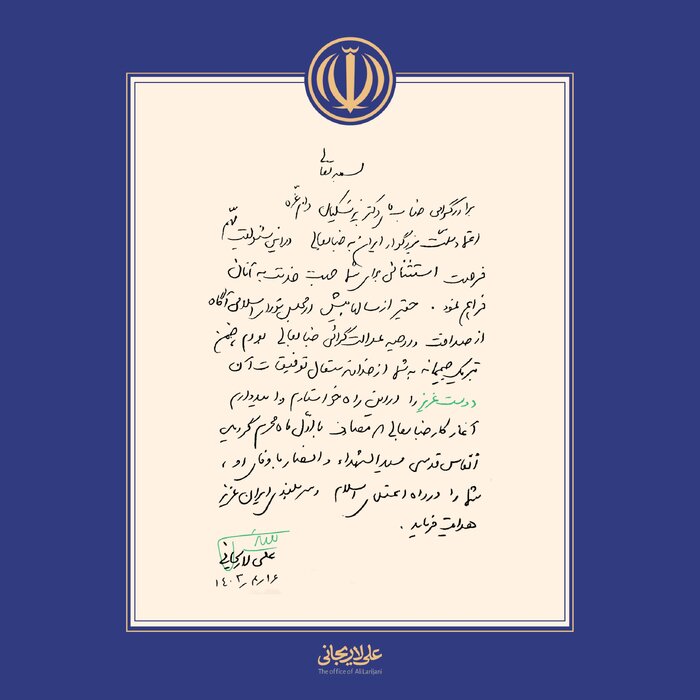 بسمه تعالی
برادر گرامی جناب آقای دکتر پزشکیان دام عزه
اعتماد ملت بزرگوار ایران به جنابعالی در این مسئولیت مهم
فرصت استثنائی برای شما جهت خدمت به آنان
فراهم نمود. حقیر از سالها پیش در مجلس شورای اسلامی آگاه
از صداقت و روحیه عدالت گرائی جنابعالی بودم، ضمن
تبریک صمیمانه به شما از خداوند متعال توفیقات آن
دوست عزیز را در این راه خواستارم و امیدوارم
آغاز کار جنابعالی که مصادف با اول ماه محرم گردیده
انفاس قدسی سیدالشهداء و انصار با وفای او،
شما را در راه اعتلای اسلام و سربلندی ایران عزیز
هدایت فرماید.
علی لاریجانی
۱۴۰۳٫۴٫۱۶
علی لاریجانی
The office of Ali Larijani